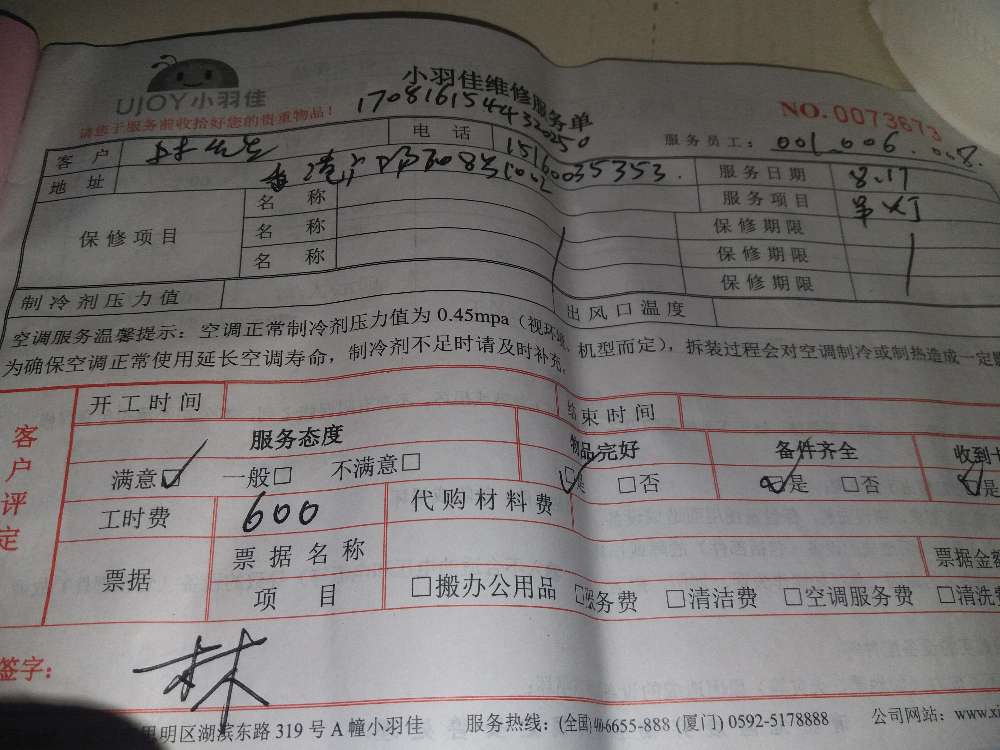 UJOY小羽佳
小羽佳维修服务单
请您于服务前收拾好您的贵重物品！
NO.0073673
服务员工： 001.006.008.
客 户 林先生 电 话
地 址
服务日期 8.17
服务项目 吊灯
保修项目 名 称 保修期限
名 称 保修期限
名 称 保修期限
制冷剂压力值 出风口温度
空调服务温馨提示：空调正常制冷剂压力值为 0.45mpa（视环境、机型而定），拆装过程会对空调制冷或制热造成一定
为确保空调正常使用延长空调寿命，制冷剂不足时请及时补充。
客户评定
开工时间 结束时间
服务态度 物品完好 备件齐全 收到
满意□ 一般□ 不满意□ □是 □否 □是 □否 □是
工时费 600 代购材料费
票据 票据名称 票据金额
项 目 □搬办公用品 □服务费 □清洁费 □空调服务费 □清洗费
签字： 林
明区湖滨东路 319 号 A 幢小羽佳 服务热线：(全国)400-6655-888 (厦门) 0592-5178888 公司网站：www.xi